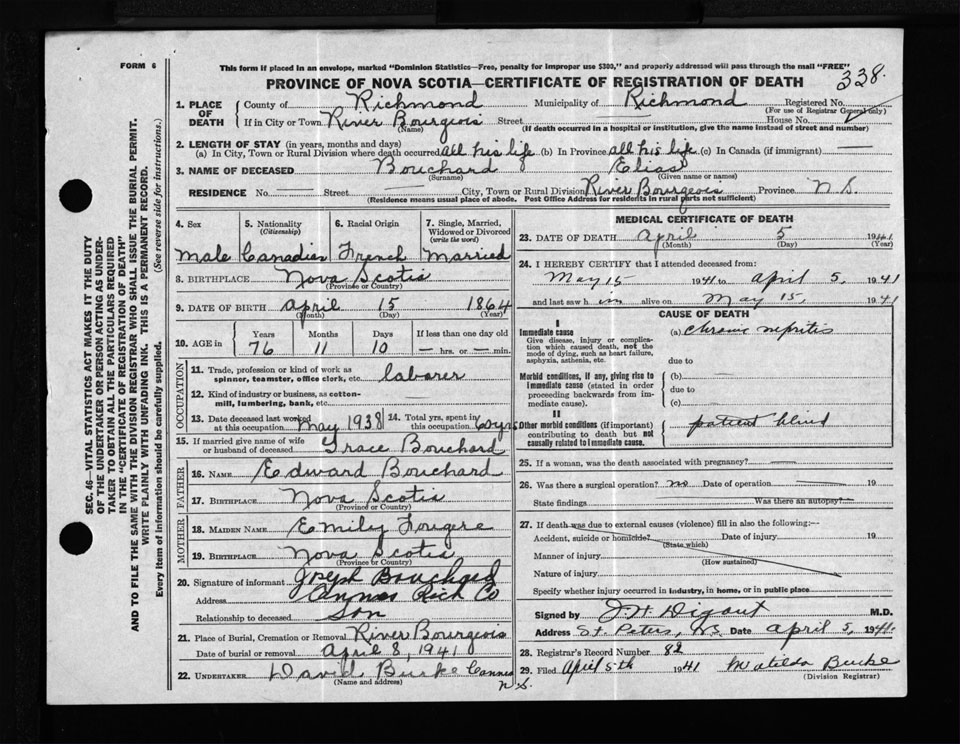 FORM 6
This form if placed in an envelope, marked "Dominion Statistics—Free, penalty for improper use $300," and properly addressed will pass through the mail "FREE"
PROVINCE OF NOVA SCOTIA—CERTIFICATE OF REGISTRATION OF DEATH
338.
SEC. 46—VITAL STATISTICS ACT MAKES IT THE DUTY
OF THE UNDERTAKER OR PERSON ACTING AS UNDER-
TAKER TO OBTAIN ALL THE PARTICULARS REQUIRED
IN THE "CERTIFICATE OF REGISTRATION OF DEATH"
AND TO FILE THE SAME WITH THE DIVISION REGISTRAR WHO SHALL ISSUE THE BURIAL PERMIT.
WRITE PLAINLY WITH UNFADING INK. THIS IS A PERMANENT RECORD.
Every item of information should be carefully supplied. (See reverse side for instructions.)
1. PLACE OF DEATH County of Richmond Municipality of Richmond Registered No.
(For use of Registrar General only)
If in City or Town River Bourgeois Street House No.
(Name) (If death occurred in a hospital or institution, give the name instead of street and number)
2. LENGTH OF STAY (in years, months and days)
(a) In City, Town or Rural Division where death occurred all his life (b) In Province all his life (c) In Canada (if immigrant) —
3. NAME OF DECEASED Bouchard Elias
(Surname) (Given name or names)
RESIDENCE No. — Street — City, Town or Rural Division River Bourgeois Province N S.
(Residence means usual place of abode. Post Office Address for residents in rural parts not sufficient)
4. Sex 5. Nationality (Citizenship) 6. Racial Origin 7. Single, Married, Widowed or Divorced (write the word)
Male Canadian French Married
8. BIRTHPLACE Nova Scotia
(Province or Country)
9. DATE OF BIRTH April 15 1864
(Month) (Day) (Year)
10. AGE in Years Months Days If less than one day old
76 11 10 — hrs. or — min.
OCCUPATION
11. Trade, profession or kind of work as spinner, teamster, office clerk, etc. laborer
12. Kind of industry or business, as cotton-mill, lumbering, bank, etc.
13. Date deceased last worked at this occupation May 1938 14. Total yrs. spent in this occupation 60 yrs
15. If married give name of wife or husband of deceased Grace Bouchard
FATHER
16. NAME Edward Bouchard
17. BIRTHPLACE Nova Scotia
(Province or Country)
MOTHER
18. MAIDEN NAME Emily Fougere
19. BIRTHPLACE Nova Scotia
(Province or Country)
20. Signature of informant Joseph Bouchard
Address Cannes Rich Co
Relationship to deceased Son
21. Place of Burial, Cremation or Removal River Bourgeois
Date of burial or removal April 8, 1941
22. UNDERTAKER David Burke Cannes
(Name and address) N.S.
MEDICAL CERTIFICATE OF DEATH
23. DATE OF DEATH April 5 1941
(Month) (Day) (Year)
24. I HEREBY CERTIFY that I attended deceased from:
May 15 1941 to April 5, 1941
and last saw him alive on May 15, 1941
CAUSE OF DEATH
I
Immediate cause (a) chronic nepritis
Give disease, injury or complication which caused death, not the mode of dying, such as heart failure, asphyxia, asthenia, etc.
due to
Morbid conditions, if any, giving rise to immediate cause (stated in order proceeding backwards from immediate cause). (b)
due to
(c)
II
Other morbid conditions (if important) contributing to death but not causally related to immediate cause. patient blind
25. If a woman, was the death associated with pregnancy? —
26. Was there a surgical operation? no Date of operation 19
State findings Was there an autopsy?
27. If death was due to external causes (violence) fill in also the following:—
Accident, suicide or homicide? Date of injury 19
(State which)
Manner of injury
(How sustained)
Nature of injury
Specify whether injury occurred in industry, in home, or in public place
Signed by J. H. Digout M.D.
Address St. Peters, N.S. Date April 5, 1941.
28. Registrar's Record Number 82
29. Filed April 5th 1941 Matilda Burke
(Division Registrar)